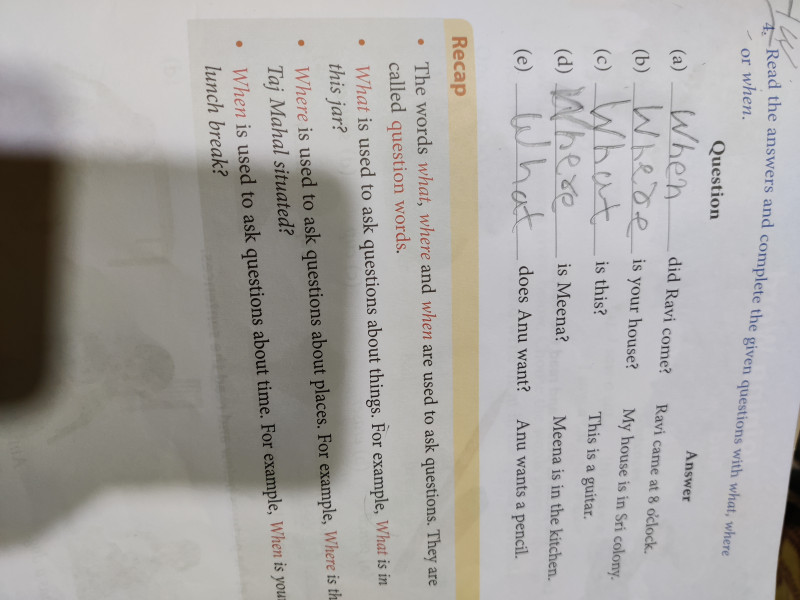 4. Read the answers and complete the given questions with what, where
or when.
Question Answer
(a) When did Ravi come? Ravi came at 8 o'clock.
(b) Where is your house? My house is in Sri colony.
(c) What is this? This is a guitar.
(d) Where is Meena? Meena is in the kitchen.
(e) What does Anu want? Anu wants a pencil.
Recap
• The words what, where and when are used to ask questions. They are
called question words.
• What is used to ask questions about things. For example, What is in
this jar?
• Where is used to ask questions about places. For example, Where is th
Taj Mahal situated?
• When is used to ask questions about time. For example, When is you
lunch break?